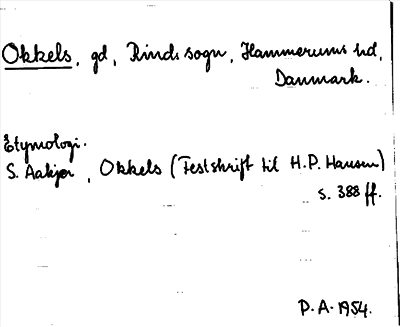 Okkels, gd, Rinds sogn, Hammerums hd,
Danmark.
Etymologi.
S. Aakjær, Okkels (Festskrift til H.P. Hansen)
s. 388 ff.
P.A. 1954.